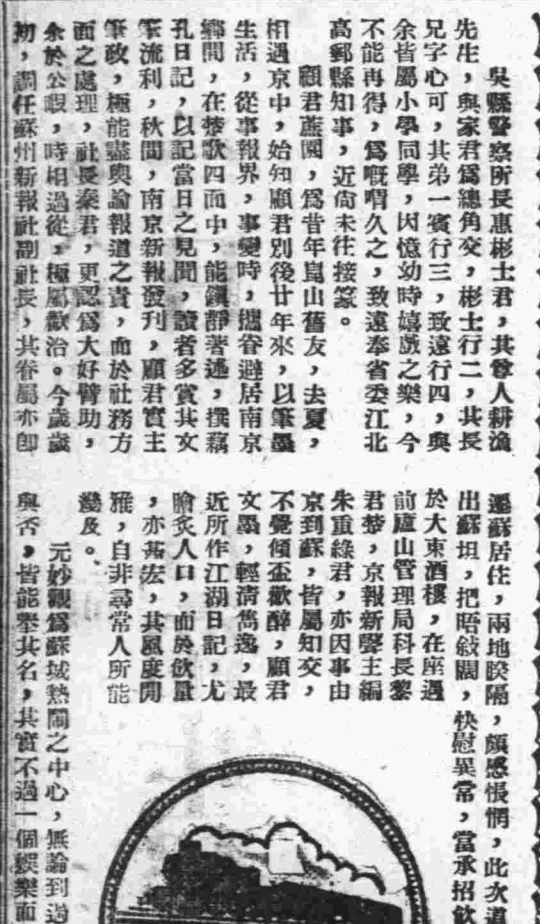 吳縣警察所長惠彬士君，其尊人耕漁
先生，與家君爲總角交，彬士行二，其長
兄字心可，其弟一賓行三，致遠行四，與
余皆屬小學同學，因憶幼時嬉戲之樂，今
不能再得，爲嘅喟久之，致遠奉省委江北
高郵縣知事，近尙未往接篆。
顧君蔗園，爲昔年崑山舊友，去夏，
相遇京中，始知顧君別後廿年來，以筆墨
生活，從事報界，事變時，攜眷避居南京
鄉間，在楚歌四面中，能鎭靜著述，撰藕
孔日記，以記當日之見聞，讀者多賞其文
筆流利，秋間，南京新報發刋，顧君實主
筆政，極能盡輿論報道之責，而於社務方
面之處理，社長秦君，更認爲大好臂助，
余於公暇，時相過從，極屬歡洽。今歲歲
初，調任蘇州新報社副社長，其眷屬亦卽
遷蘇居住，兩地睽隔，頗感悵惘，此次道
出蘇垣，把晤敍闊，快慰異常，當承招飲
於大東酒樓，在座遇
前廬山管理局科長黎
君楚，京報新聲主編
朱重綠君，亦因事由
京到蘇，皆屬知交，
不覺傾盃歡醉，顧君
文墨，輕清雋逸，最
近所作江湖日記，尤
膾炙人口，而於飲量
，亦甚宏，其風度閒
雅，自非尋常人所能
幾及。
元妙觀爲蘇城熱鬧之中心，無論到過
與否，皆能舉其名，其實不過一個娛樂面